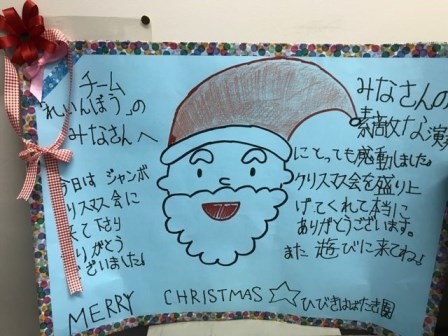 チーム
「れいんぼう」の
みなさんへ
今日は ジャンボ
クリスマス会に
来て下さり
ありがとう
ございました♪
みなさんの
素敵な演奏
にとっても感動しました♪
クリスマス会を盛り上
げてくれて本当に
ありがとうございます。
また 遊びに来てね♪
MERRY CHRISTMAS ☆ ひびきはばたき園